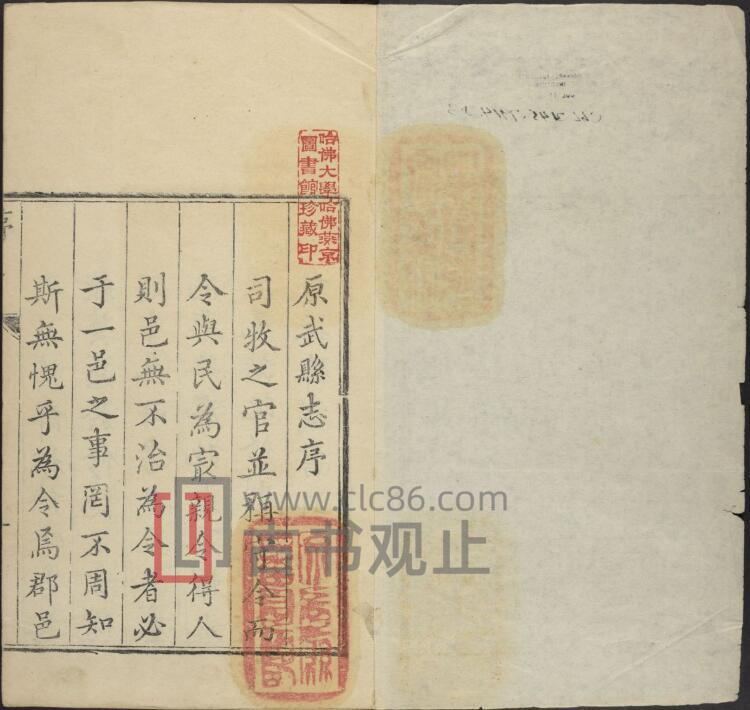 原武縣志序
司牧之官並顯惟令而
令與民為冣親令得人
則邑無不治為令者必
于一邑之事罔不周知
斯無愧乎為令焉郡邑
哈佛大學哈佛燕京
圖書館珍藏印
www.clc86.com
古书观止